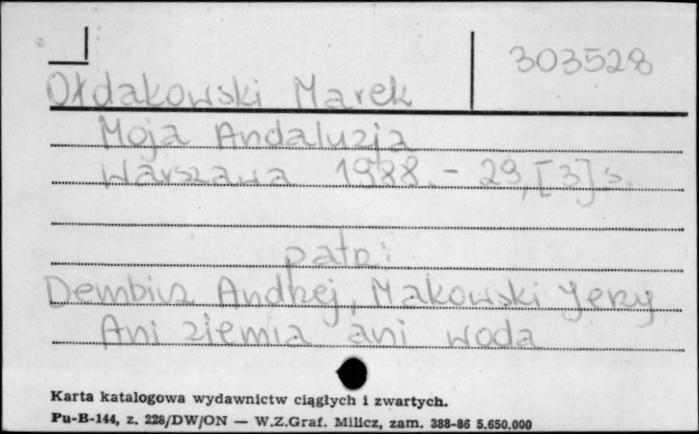 303528
Ołdakowski Marek
Moja Andaluzja
Warszawa 1988. - 29, [3] s.
patz:
Dembicz Andrzej, Makowski Jerzy
Ani ziemia ani woda
Karta katalogowa wydawnictw ciągłych i zwartych.
Pu-B-144, z. 228/DW/ON — W.Z.Graf. Milicz, zam. 388-86 5.650.000